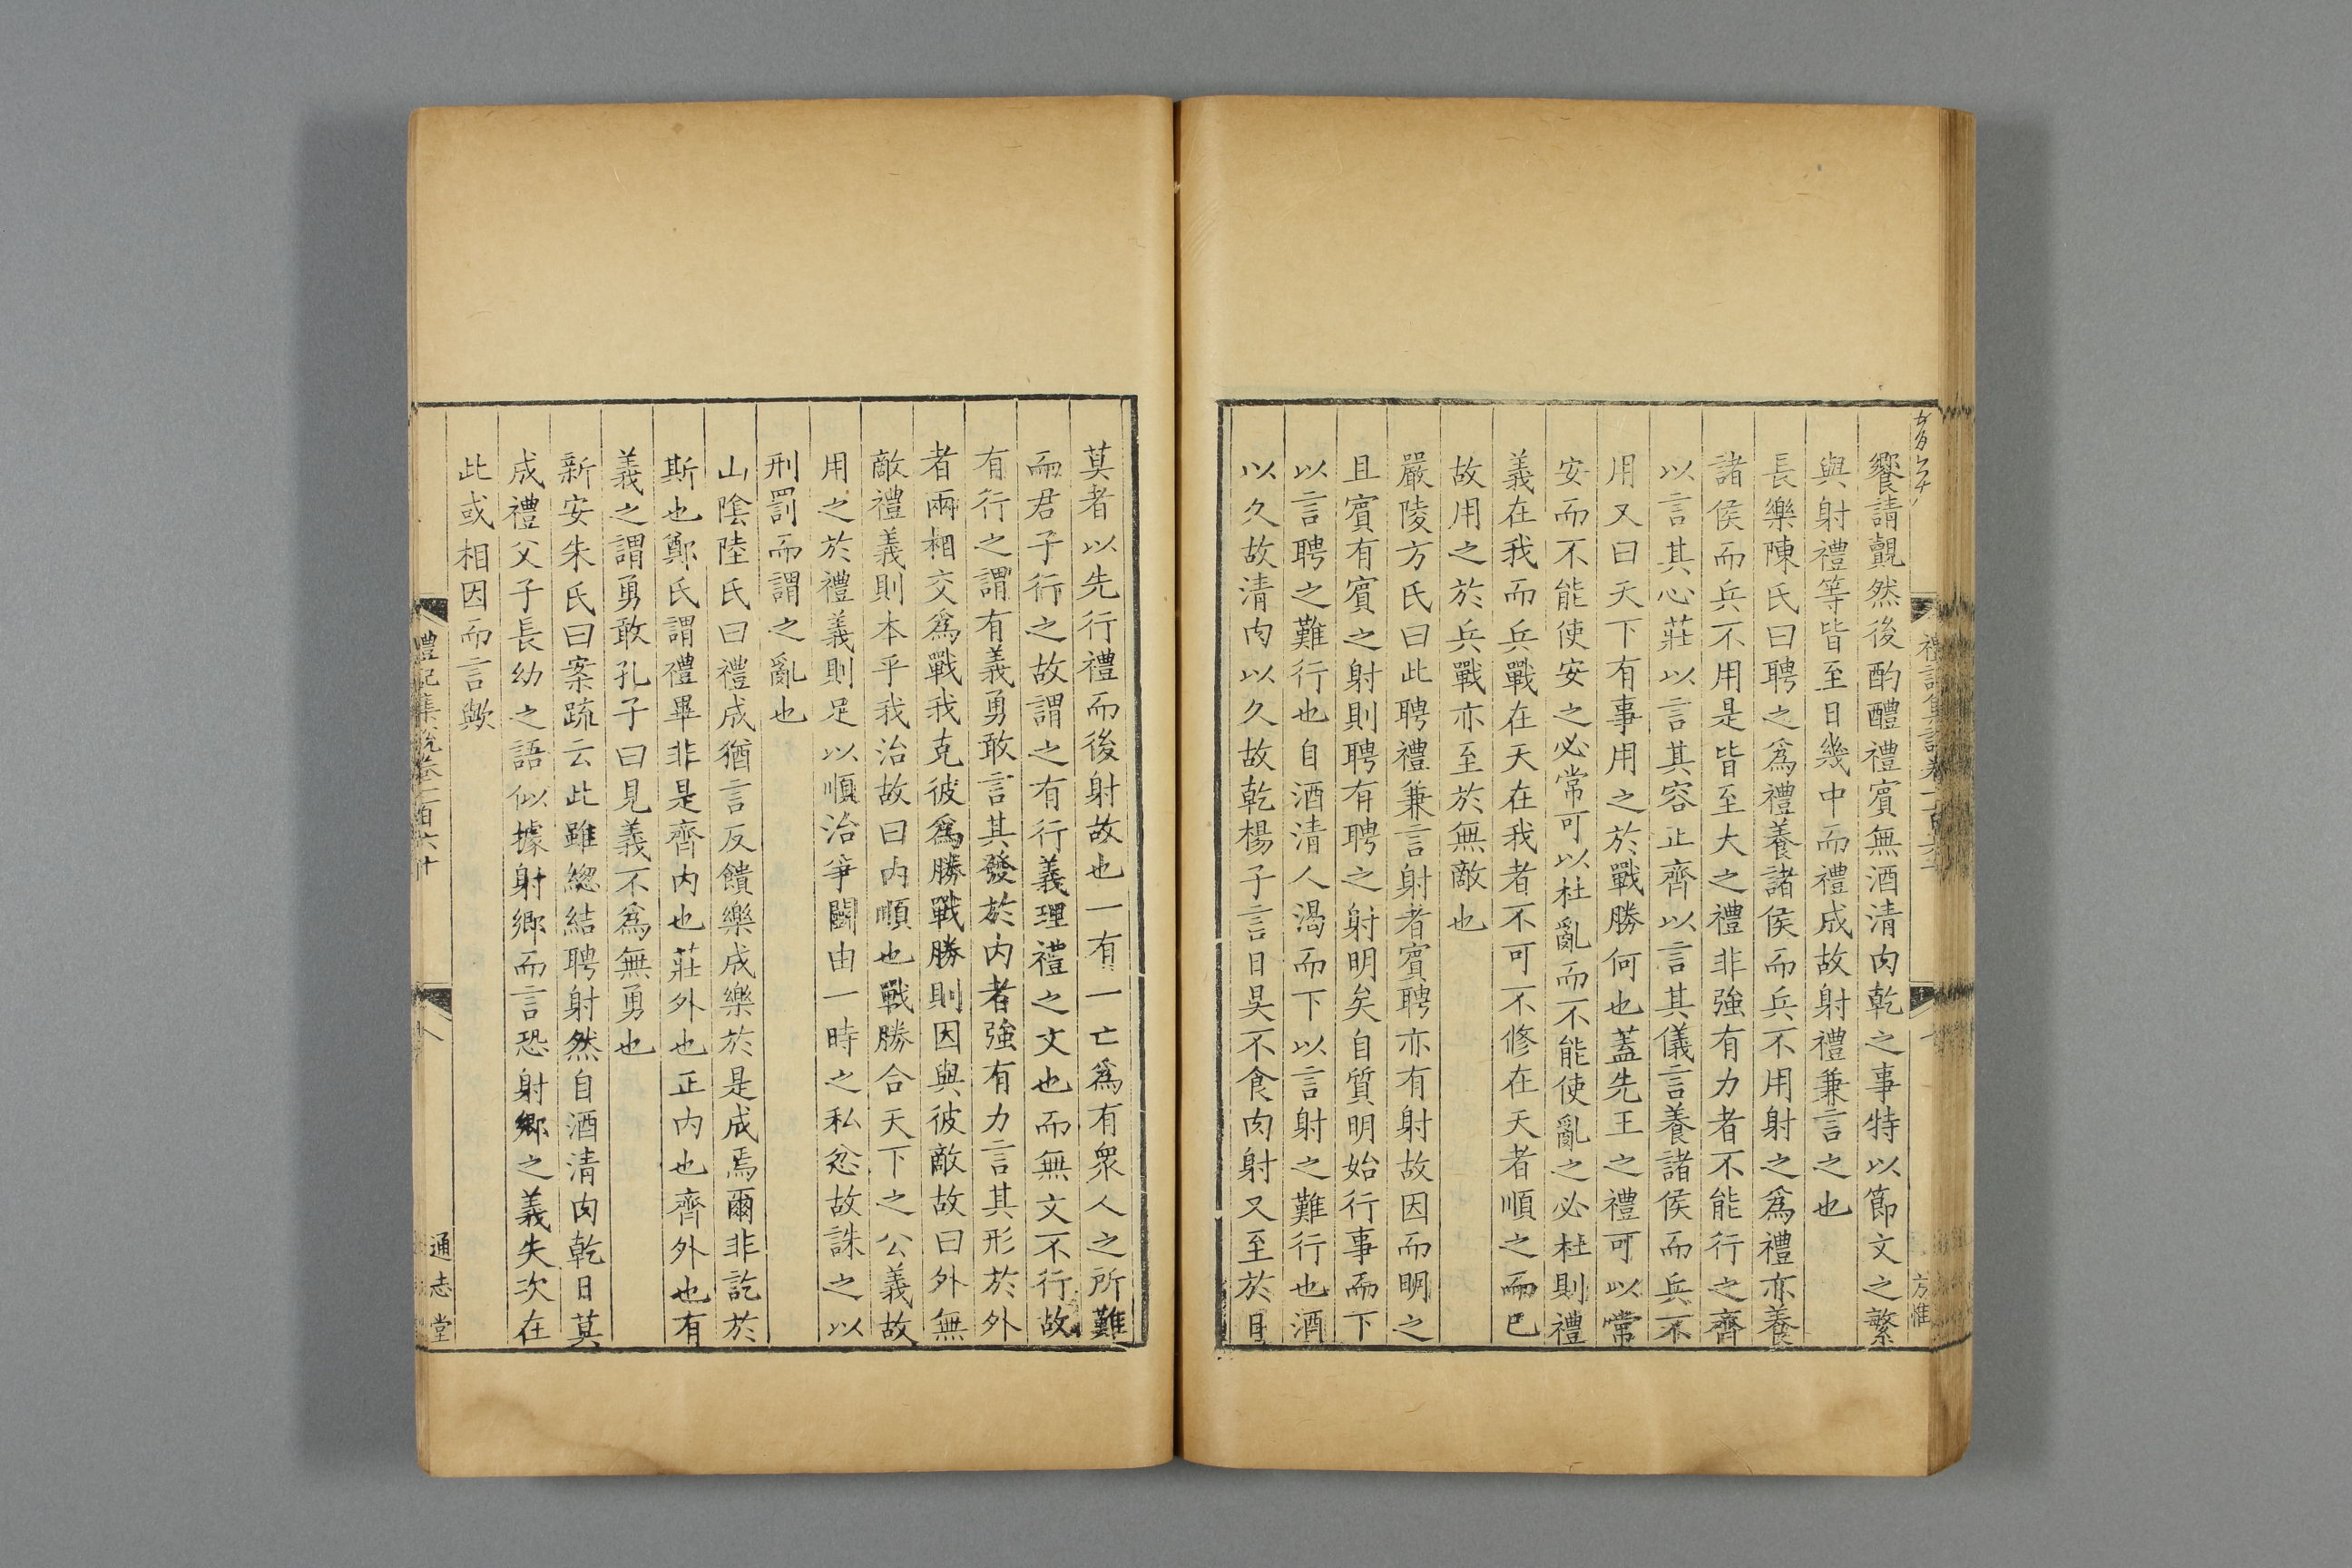 饗請覿然後酌醴禮賓無酒清肉乾之事特以節文之繁
與射禮等皆至日幾中而禮成故射禮兼言之也
長樂陳氏曰聘之爲禮養諸侯而兵不用射之爲禮亦養
諸侯而兵不用是皆至大之禮非強有力者不能行之齊
以言其心莊以言其容正齊以言其儀言養諸侯而兵不
用又曰天下有事用之於戰勝何也蓋先王之禮可以常
安而不能使安之必常可以杜亂而不能使亂之必杜則禮
義在我而兵戰在天在我者不可不修在天者順之而已
故用之於兵戰亦至於無敵也
嚴陵方氏曰此聘禮兼言射者賓聘亦有射故因而明之
且賓有賓之射則聘有聘之射明矣自質明始行事而下
以言聘之難行也自酒清人渴而下以言射之難行也酒
以久故清肉以久故乾楊子言日昃不食肉射又至於日
莫者以先行禮而後射故也一有一亡爲有衆人之所難
而君子行之故謂之有行義理禮之文也而無文不行故
有行之謂有義勇敢言其發於內者強有力言其形於外
者兩相交爲戰我克彼爲勝戰勝則因與彼敵故曰外無
敵禮義則本乎我治故曰內順也戰勝合天下之公義故
用之於禮義則足以順治爭鬪由一時之私忿故誅之以
刑罰而謂之亂也
山陰陸氏曰禮成猶言反饋樂成樂於是成焉爾非訖於
斯也鄭氏謂禮畢非是齊內也莊外也正內也齊外也有
義之謂勇敢孔子曰見義不爲無勇也
新安朱氏曰案疏云此雖緫結聘射然自酒清肉乾日莫
成禮父子長幼之語似據射鄉而言恐射鄉之義失次在
此或相因而言歟
禮記集說卷一百六十
八
通志堂